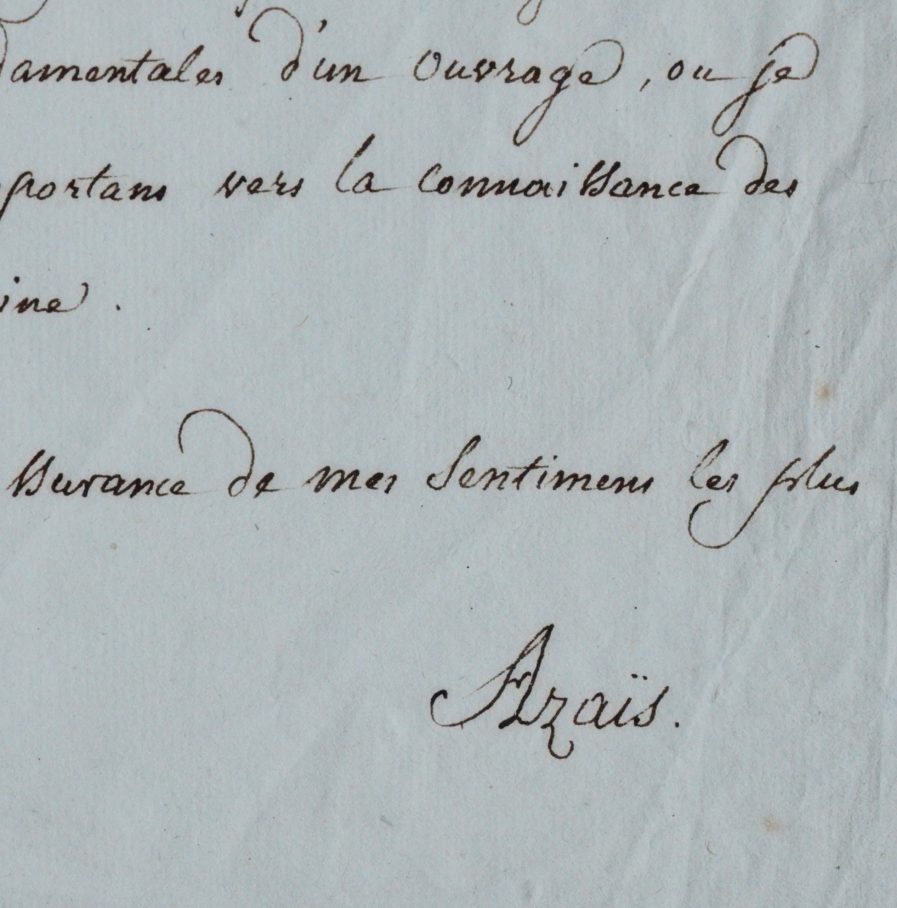 damentales d'un ouvrage, ou je
portans vers la connaissance des
ine.
ssurance de mes sentimens les plus
Azaïs.